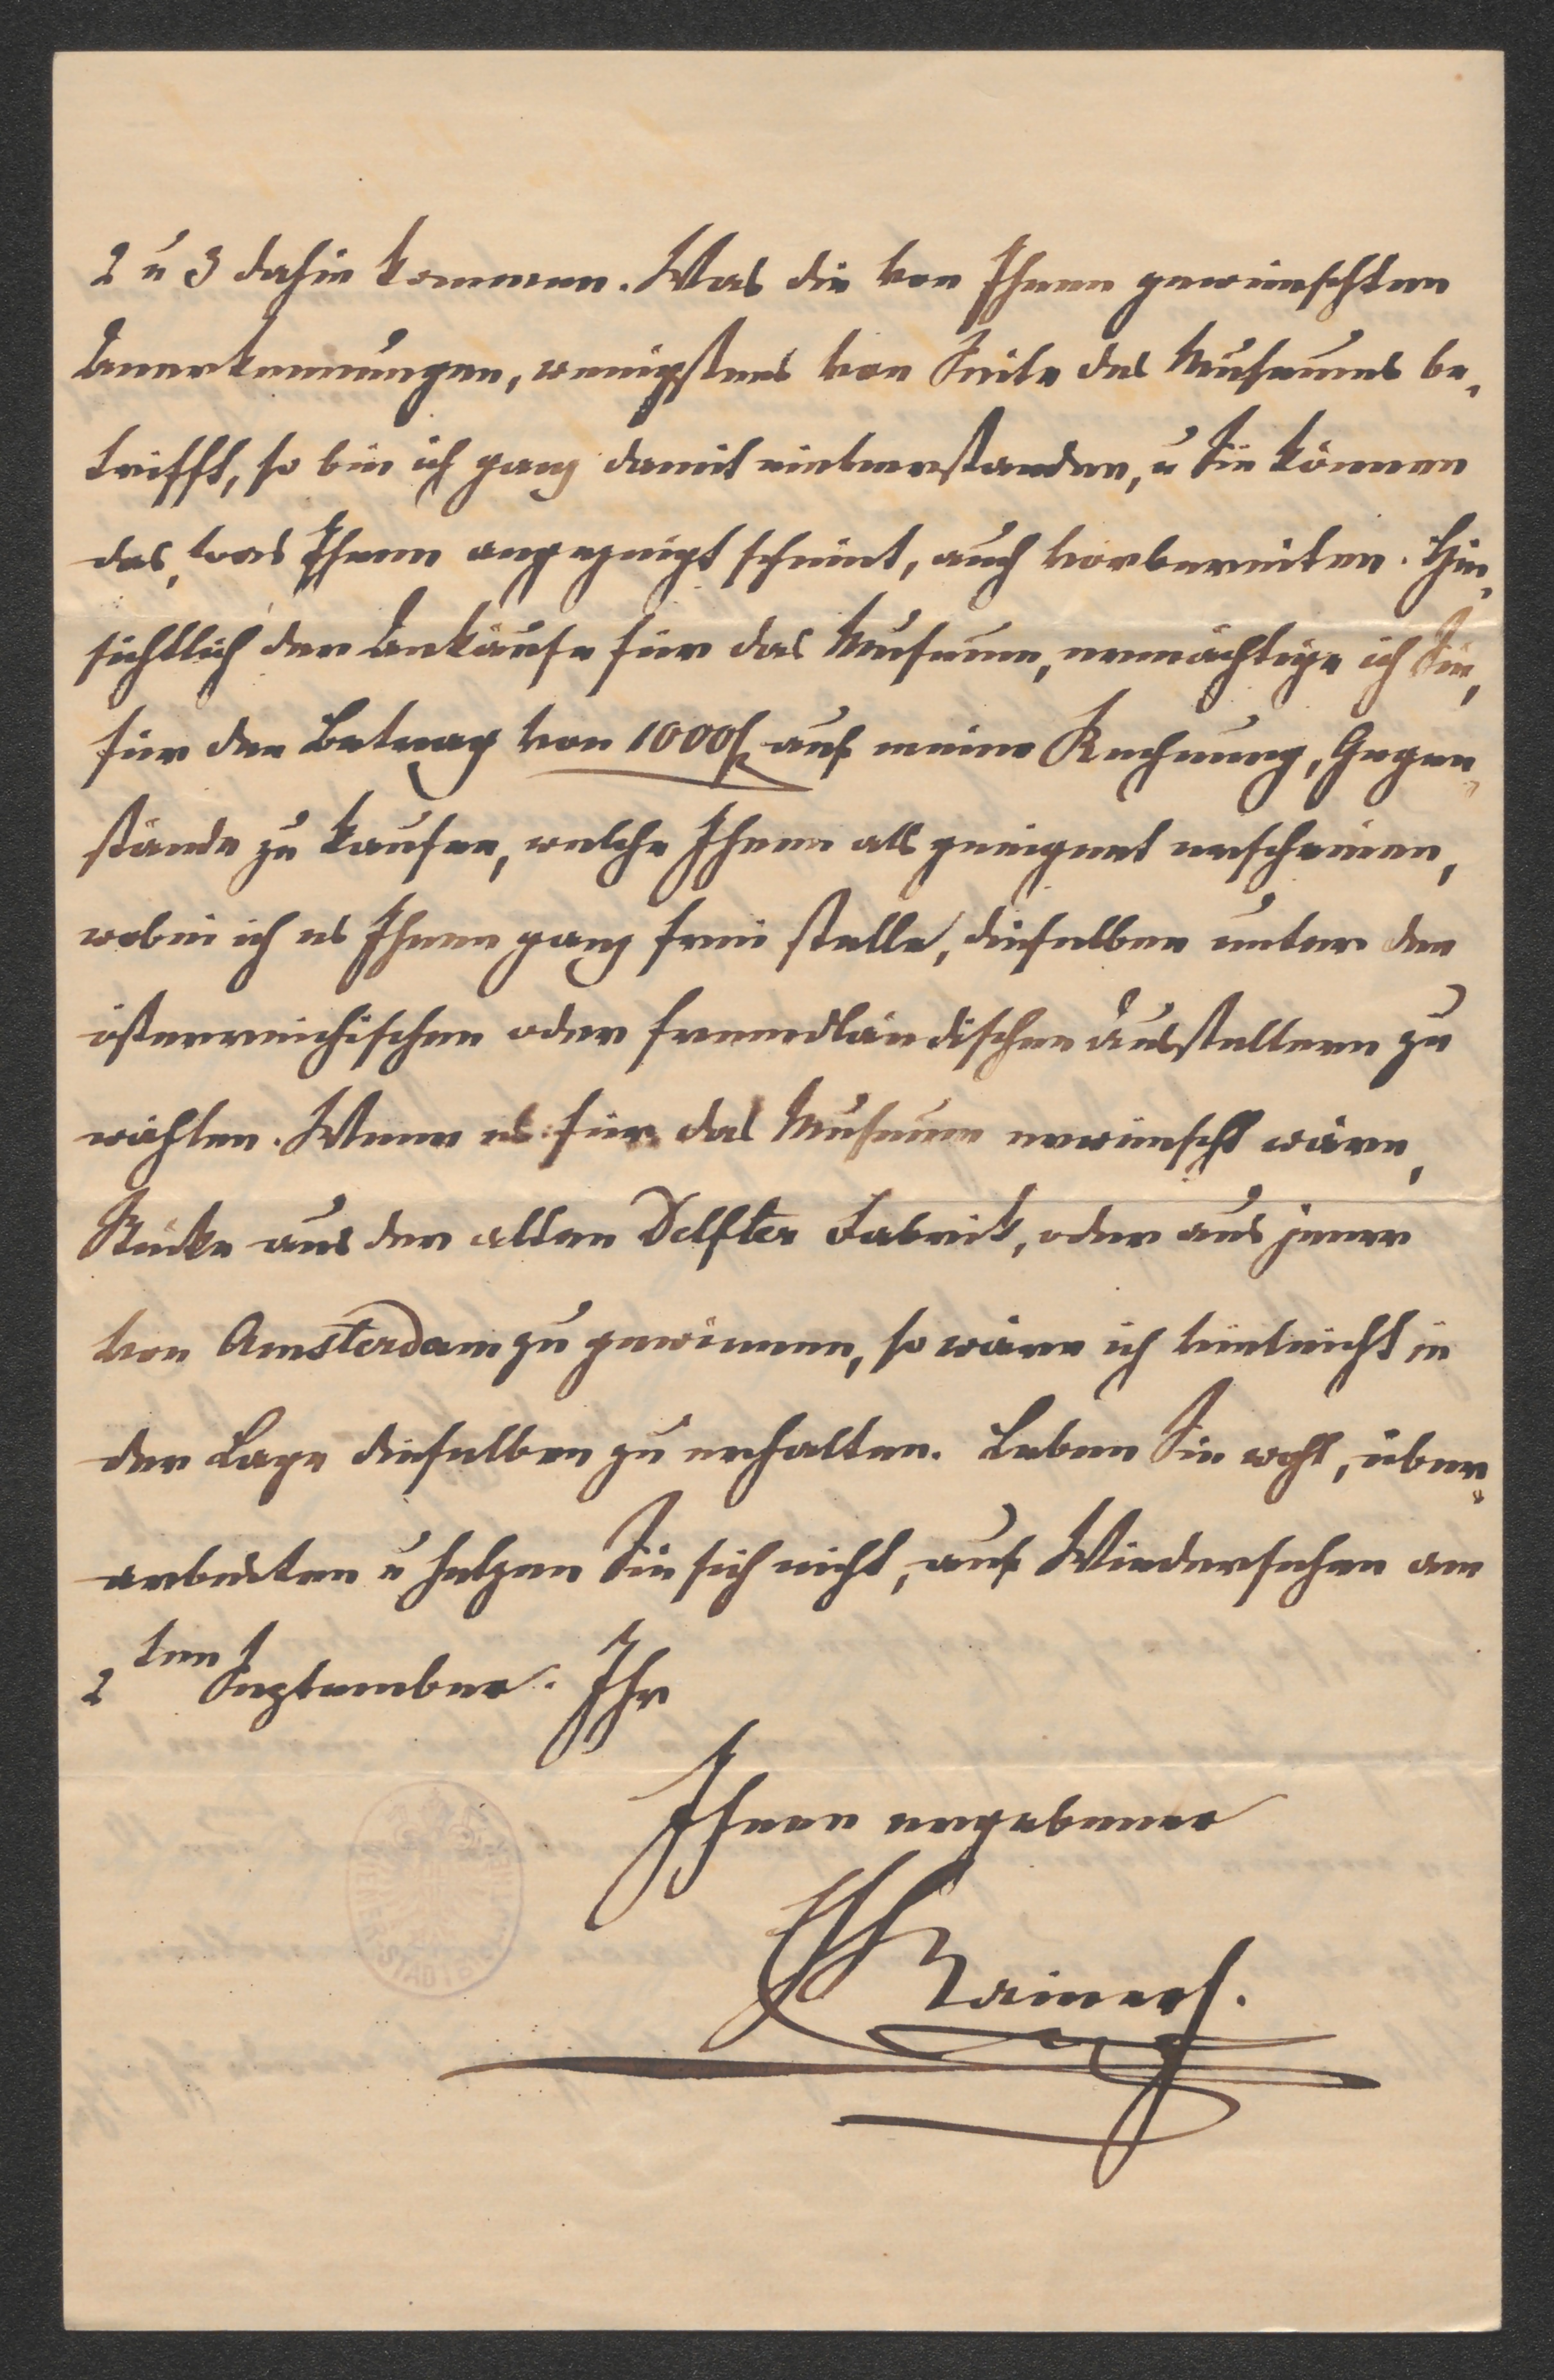 2 u 3 dahin kommen. Was die von Ihnen gewünschten
Anerkennungen, wenigstens von Seite des Museums be-
trifft, so bin ich ganz damit einverstanden, u Sie können
das, was Ihnen angezeigt scheint, auch vorbereiten. Hin-
sichtlich der Ankäufe für das Museum, ermächtige ich Sie,
für den Betrag von 1000f auf meine Rechnung, Gegen-
stände zu kaufen, welche Ihnen als geeignet erscheinen,
wobei ich es Ihnen ganz frei stelle, dieselben unter den
österreichischen oder fremdländischen Ausstellern zu
wählen. Wenn es für das Museum erwünscht wäre,
Stücke aus der alten Delfter Fabrik, oder aus jener
von Amsterdam zu gewinnen, so wäre ich vielleicht in
der Lage dieselben zu erhalten. Leben Sie wohl, über-
arbeiten u hetzen Sie sich nicht, auf Wiedersehen am
2ten September. Ihr
Ihnen ergebener
EH Rainer.